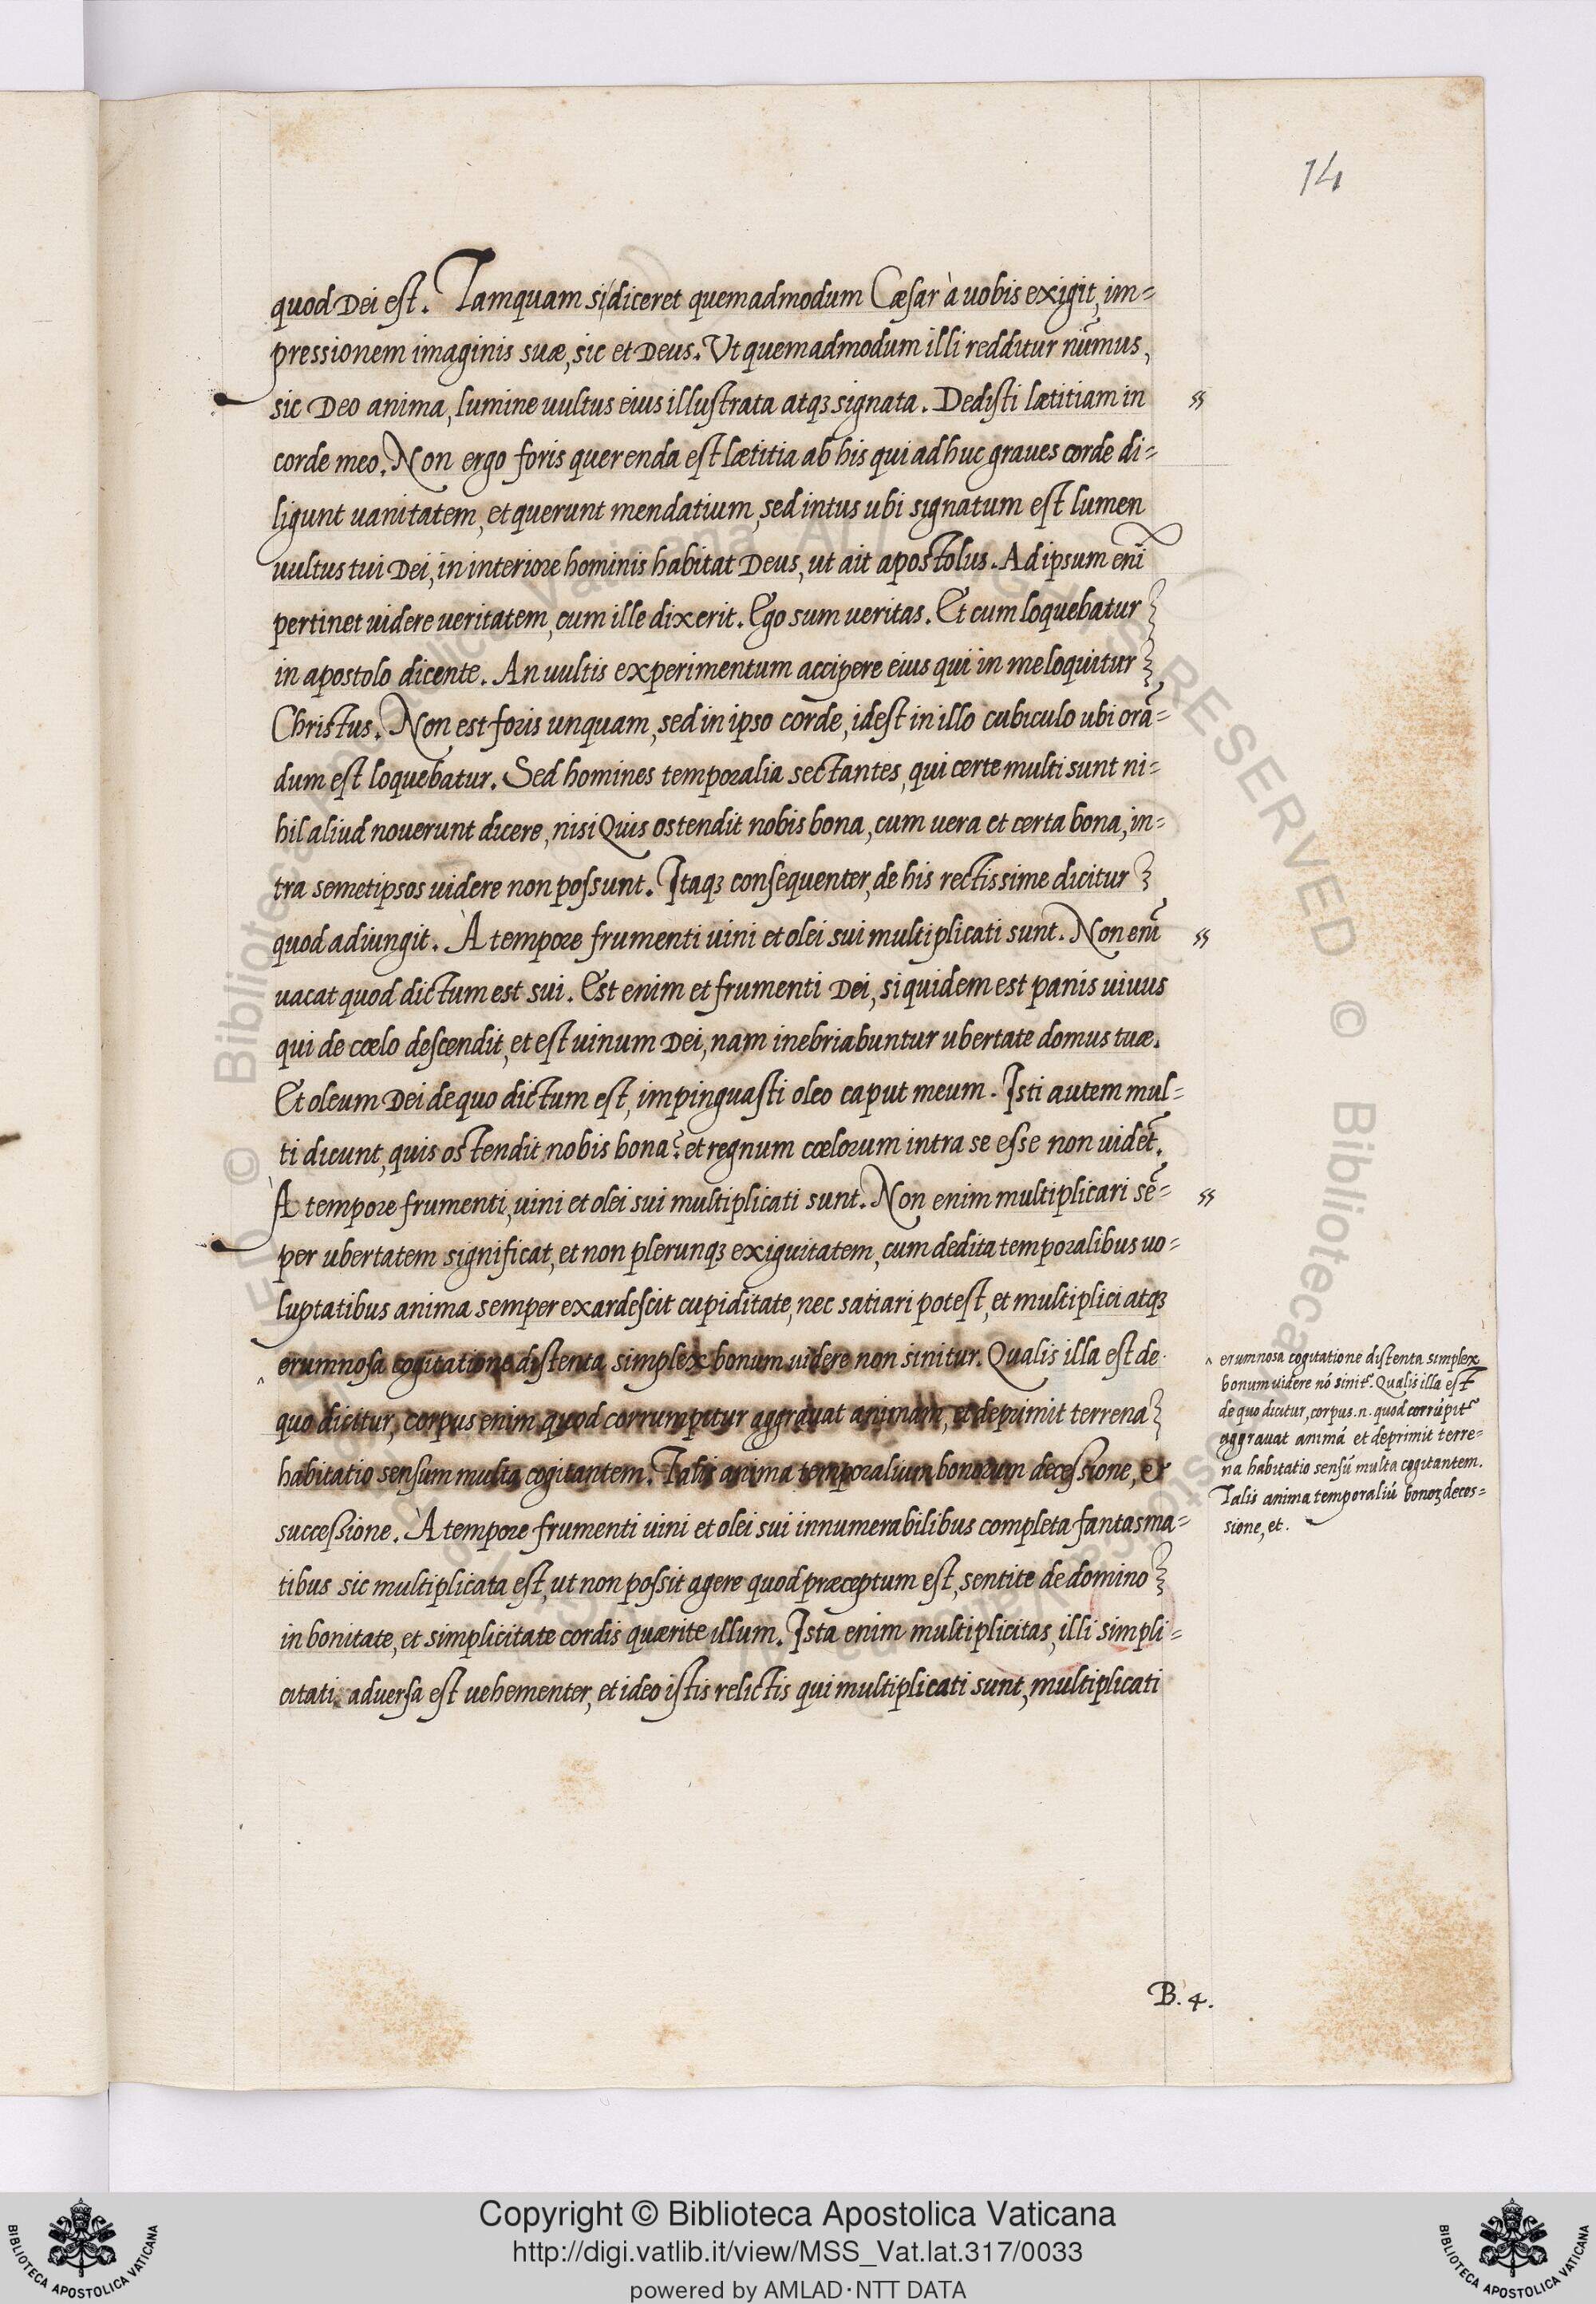 14
quod Dei est. Tamquam si diceret quemadmodum Cæsar à uobis exigit, im=
pressionem imaginis suæ, sic et Deus. Vt quemadmodum illi redditur nūmus,
sic Deo anima, lumine uultus eius illustrata atqꝫ signata. Dedisti lætitiam in
corde meo. Non ergo foris querenda est lætitia ab his qui adhuc graues corde di=
ligunt uanitatem, et querunt mendatium, sed intus ubi signatum est lumen
uultus tui Dei, in interiore hominis habitat Deus, ut ait apostolus. Ad ipsum enī
pertinet uidere ueritatem, cum ille dixerit. Ego sum ueritas. Et cum loquebatur
in apostolo dicente. An uultis experimentum accipere eius qui in me loquitur
Christus. Non est foris unquam, sed in ipso corde, idest in illo cubiculo ubi orā=
dum est loquebatur. Sed homines temporalia sectantes, qui certe multi sunt ni=
hil aliud nouerunt dicere, nisi Quis ostendit nobis bona, cum uera et certa bona, in=
tra semetipsos uidere non possunt. Itaqꝫ consequenter, de his rectissime dicitur
quod adiungit. À tempore frumenti uini et olei sui multiplicati sunt. Non enī
uacat quod dictum est sui. Est enim et frumenti Dei, siquidem est panis uiuus
qui de cœlo descendit, et est uinum Dei, nam inebriabuntur ubertate domus tuæ.
Et oleum Dei de quo dictum est, impinguasti oleo caput meum. Isti autem mul=
ti dicunt, quis ostendit nobis bona? et regnum cœlorum intra se esse non uidēt.
À tempore frumenti, uini et olei sui multiplicati sunt. Non enim multiplicari sē=
per ubertatem significat, et non plerunqꝫ exiguitatem, cum dedita temporalibus uo=
luptatibus anima semper exardescit cupiditate, nec satiari potest, et multiplici atqꝫ
erumnosa cogitatione distenta simplex bonum uidere non sinitur. Qualis illa est de
quo dicitur, corpus enim quod corrumpitur aggrauat animam, et deprimit terrena
habitatio sensum multa cogitantem. Talis anima temporalium bonorum decessione, et
successione. À tempore frumenti uini et olei sui innumerabilibus completa fantasma=
tibus sic multiplicata est, ut non possit agere quod præceptum est, sentite de domino
in bonitate, et simplicitate cordis quærite illum. Ista enim multiplicitas, illi simpli=
citati aduersa est uehementer, et ideo istis relictis qui multiplicati sunt, multiplicati
^ erumnosa cogitatione distenta simplex
bonum uidere nō sinit᷑. Qualis illa est
de quo dicitur, corpus .n. quod corrūpit᷑
aggrauat animā et deprimit terre=
na habitatio sensū multa cogitantem.
Talis anima temporaliū bonoꝝ deces=
sione, et.
B. 4.
Copyright © Biblioteca Apostolica Vaticana
http://digi.vatlib.it/view/MSS_Vat.lat.317/0033
powered by AMLAD·NTT DATA
BIBLIOTECA APOSTOLICA VATICANA
BIBLIOTECA APOSTOLICA VATICANA